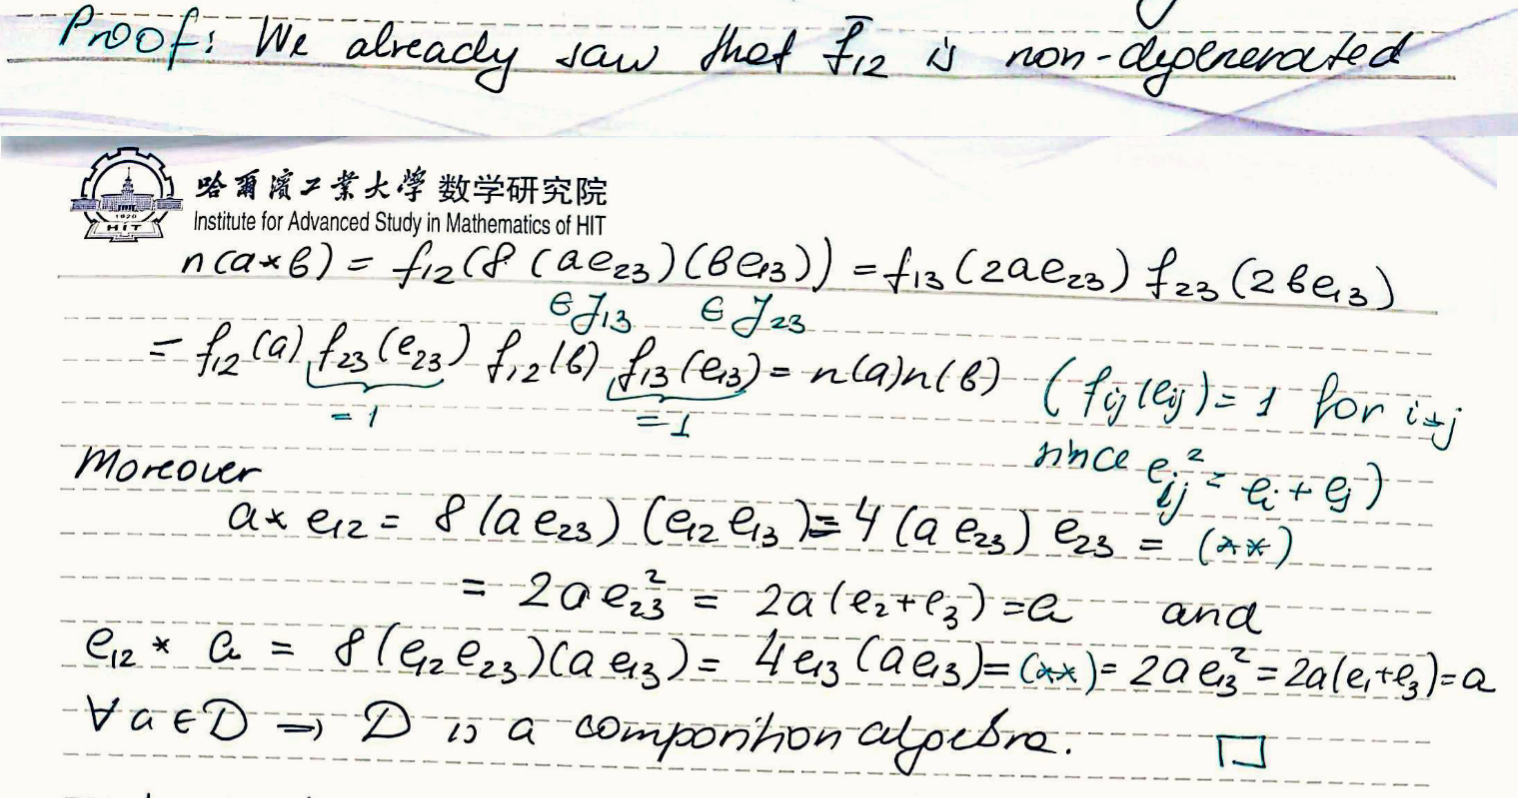 Proof: We already saw that f̄₁₂ is non-degenerated
哈爾濱工業大學 数学研究院
1920
HIT
Institute for Advanced Study in Mathematics of HIT
n(a*b) = f₁₂(8(ae₂₃)(be₁₃)) = f₁₃(2ae₂₃) f₂₃(2be₁₃)
∈J₁₃ ∈J₂₃
= f₁₂(a) f₂₃(e₂₃) f₁₂(b) f₁₃(e₁₃) = n(a)n(b) (fᵢⱼ(eᵢⱼ) = 1 for i≠j
=1 =1 since eᵢⱼ² = eᵢ + eⱼ)
Moreover
a * e₁₂ = 8(ae₂₃)(e₁₂e₁₃) = 4(ae₂₃)e₂₃ = (**)
= 2ae₂₃² = 2a(e₂+e₃) = a and
e₁₂ * a = 8(e₁₂e₂₃)(ae₁₃) = 4e₁₃(ae₁₃) = (**) = 2ae₁₃² = 2a(e₁+e₃) = a
∀a∈D ⇒ D is a composition algebra. □